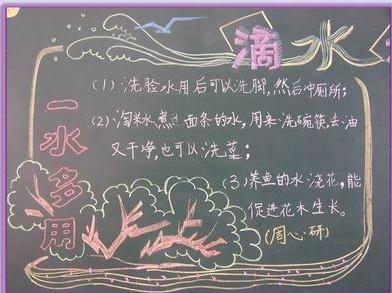 滴水
一水多用
(1) 洗脸水用后可以洗脚，然后冲厕所；
(2) 淘米水煮过面条的水，用来洗碗筷去油
又干净，也可以洗菜；
(3) 养鱼的水浇花，能
促进花木生长。
(周心研)